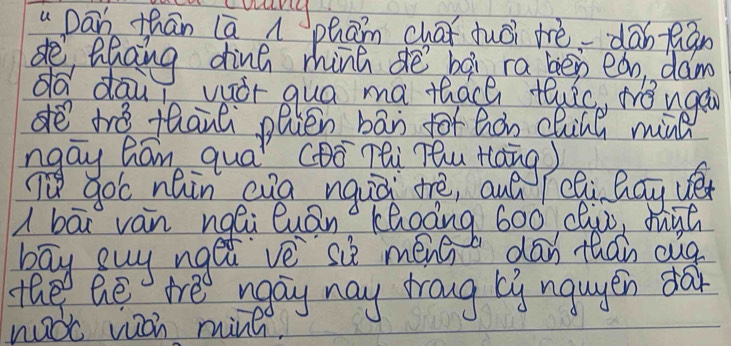 "Dấn thân là 1 phẩm chất tuổi trẻ - dấn thân
để khẳng định mình để bơi ra biển lớn, dám
đối đầu, vượt qua mọi thách thức, trở ngại
để trở thành phiên bản tốt hơn chính mình
ngày hôm qua" (Đỗ Thị Thu Hằng)
Từ góc nhìn của người trẻ, anh / chị hãy viết
1 bài văn nghị luận khoảng 600 chữ, trình
bày suy nghĩ về sứ mệnh "dấn thân" của
thế hệ trẻ ngày nay trong kỷ nguyên đất
nước vươn mình.